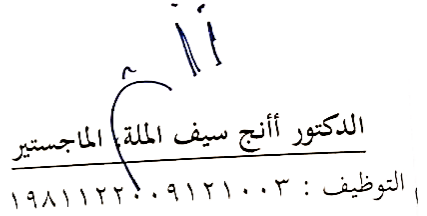 الدكتور أأنج سيف الملة، الماجستير
التوظيف : ١٩٨١١٢٢٠٠٩١٢١٠٠٣